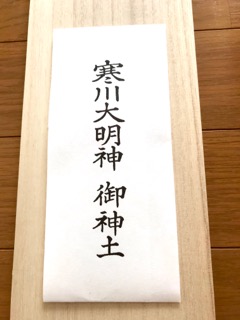 寒川大明神 御神土